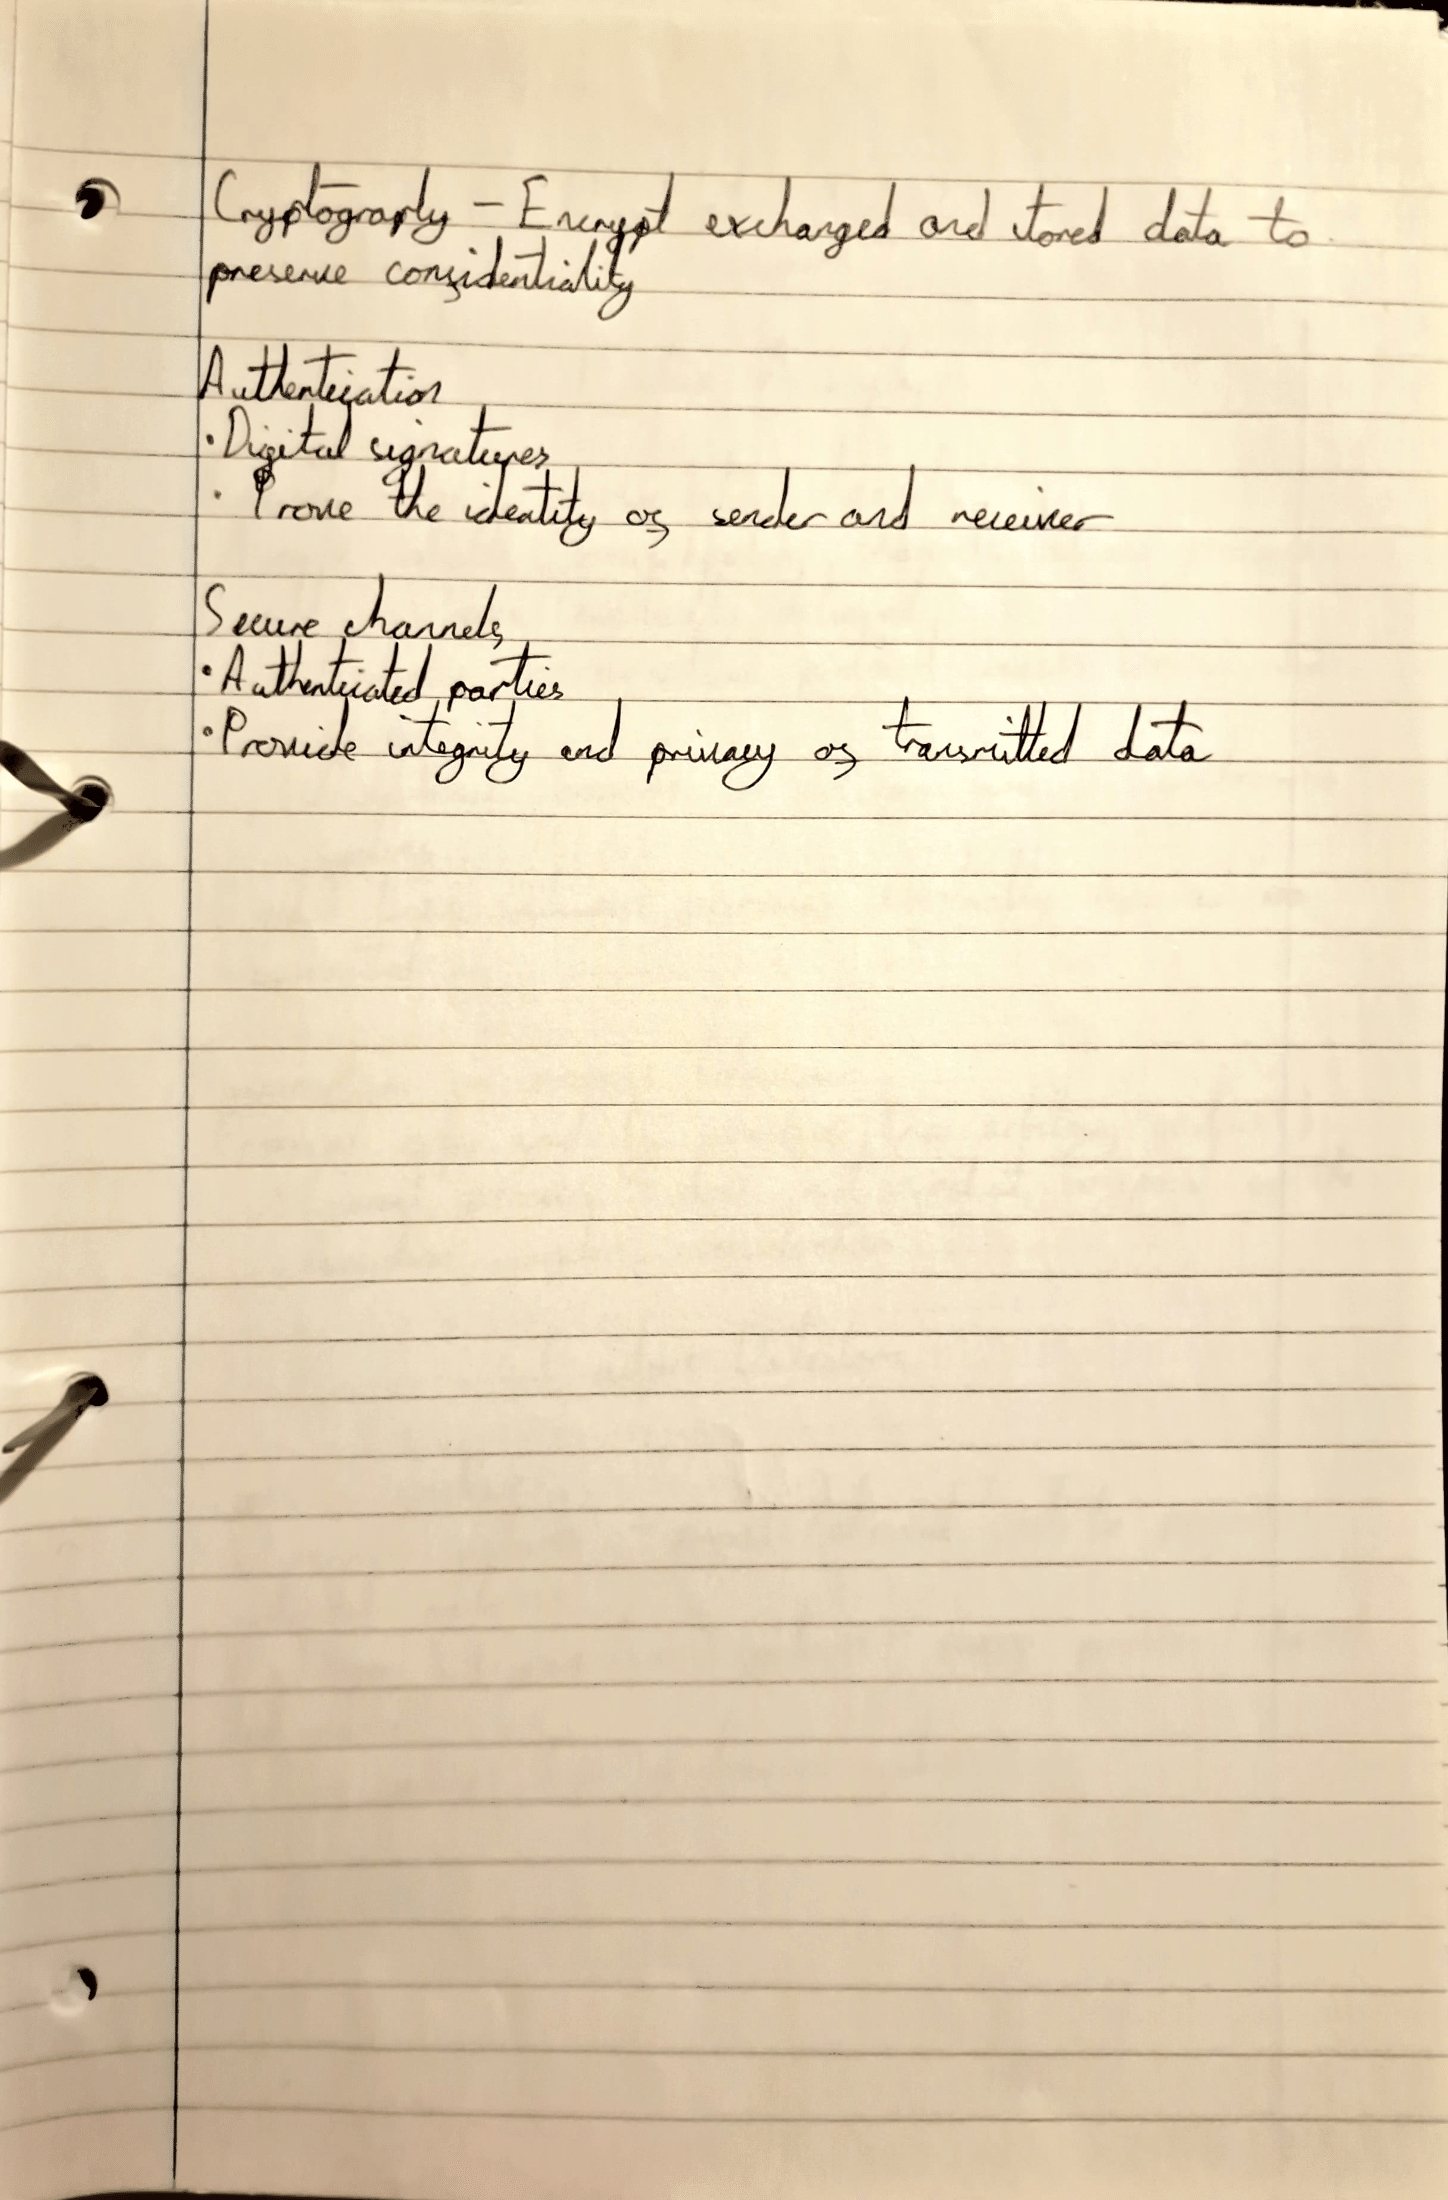 Cryptography – Encrypt exchanged and stored data to
preserve confidentiality
Authentication
• Digital signatures
• Prove the identity of sender and receiver
Secure channels
• Authenticated parties
• Provide integrity and privacy of transmitted data